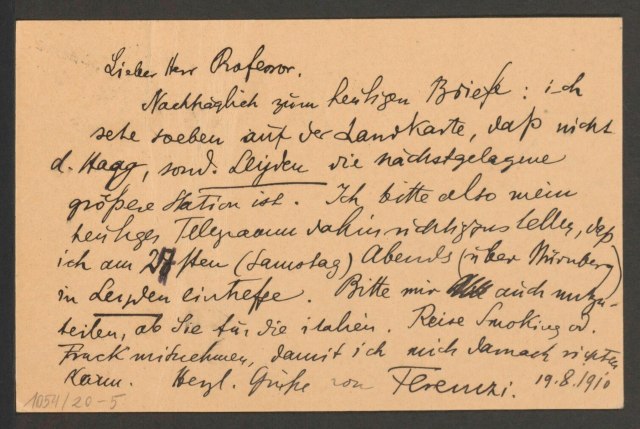 Lieber Herr Professor.
Nachträglich zum heutigen Briefe: ich
sehe soeben auf der Landkarte, daß nicht
d. Haag, sond. Leijden die nächstgelegene
größere Station ist. Ich bitte also mein
heutiges Telegramm dahin richtigzustellen, daß
ich am 27sten (Samstag) Abends (über Nürnberg)
in Leijden eintreffe. Bitte mir auch mitzu-
teilen, ob Sie für die italien. Reise Smoking od.
Frack mitnehmen, damit ich mich darnach richten
kann. Herzl. Grüße von Ferenczi. 19.8.1910
1054/20-5